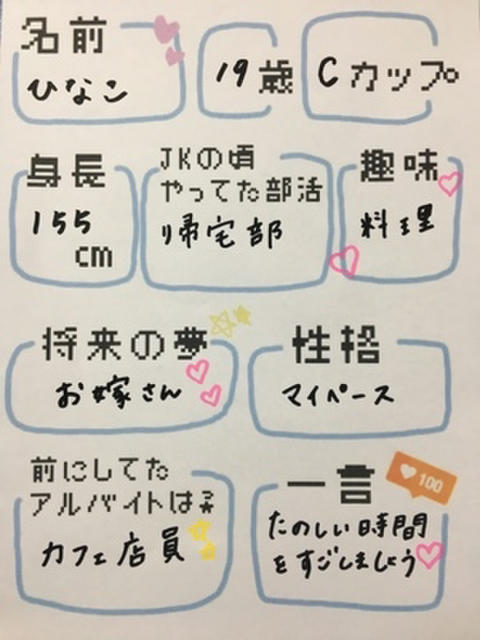 名前
ひなこ
19歳
Cカップ
身長
155
cm
JKの頃
やってた部活
帰宅部
趣味
料理
将来の夢
お嫁さん
性格
マイペース
前にしてた
アルバイトは?
カフェ店員
一言
100
たのしい時間
をすごしましょう